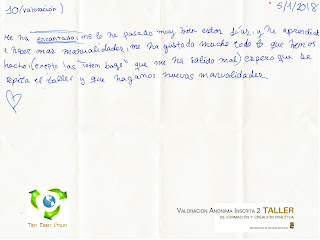 10 (valoración) 5/1/2018
Me ha encantado, me lo he pasado muy bien estos días, y he aprendido
a hacer mas manualidades, me ha gustado mucho todo lo que hemos
hecho, (excepto las "totem bags" que me ha salido mal) espero que se
repita el taller y que hagamos nuevas manualidades.
VALORACION ANONIMA INSCRITA 2 TALLER
DE FORMACIÓN Y CREACIÓN PRÁCTICA